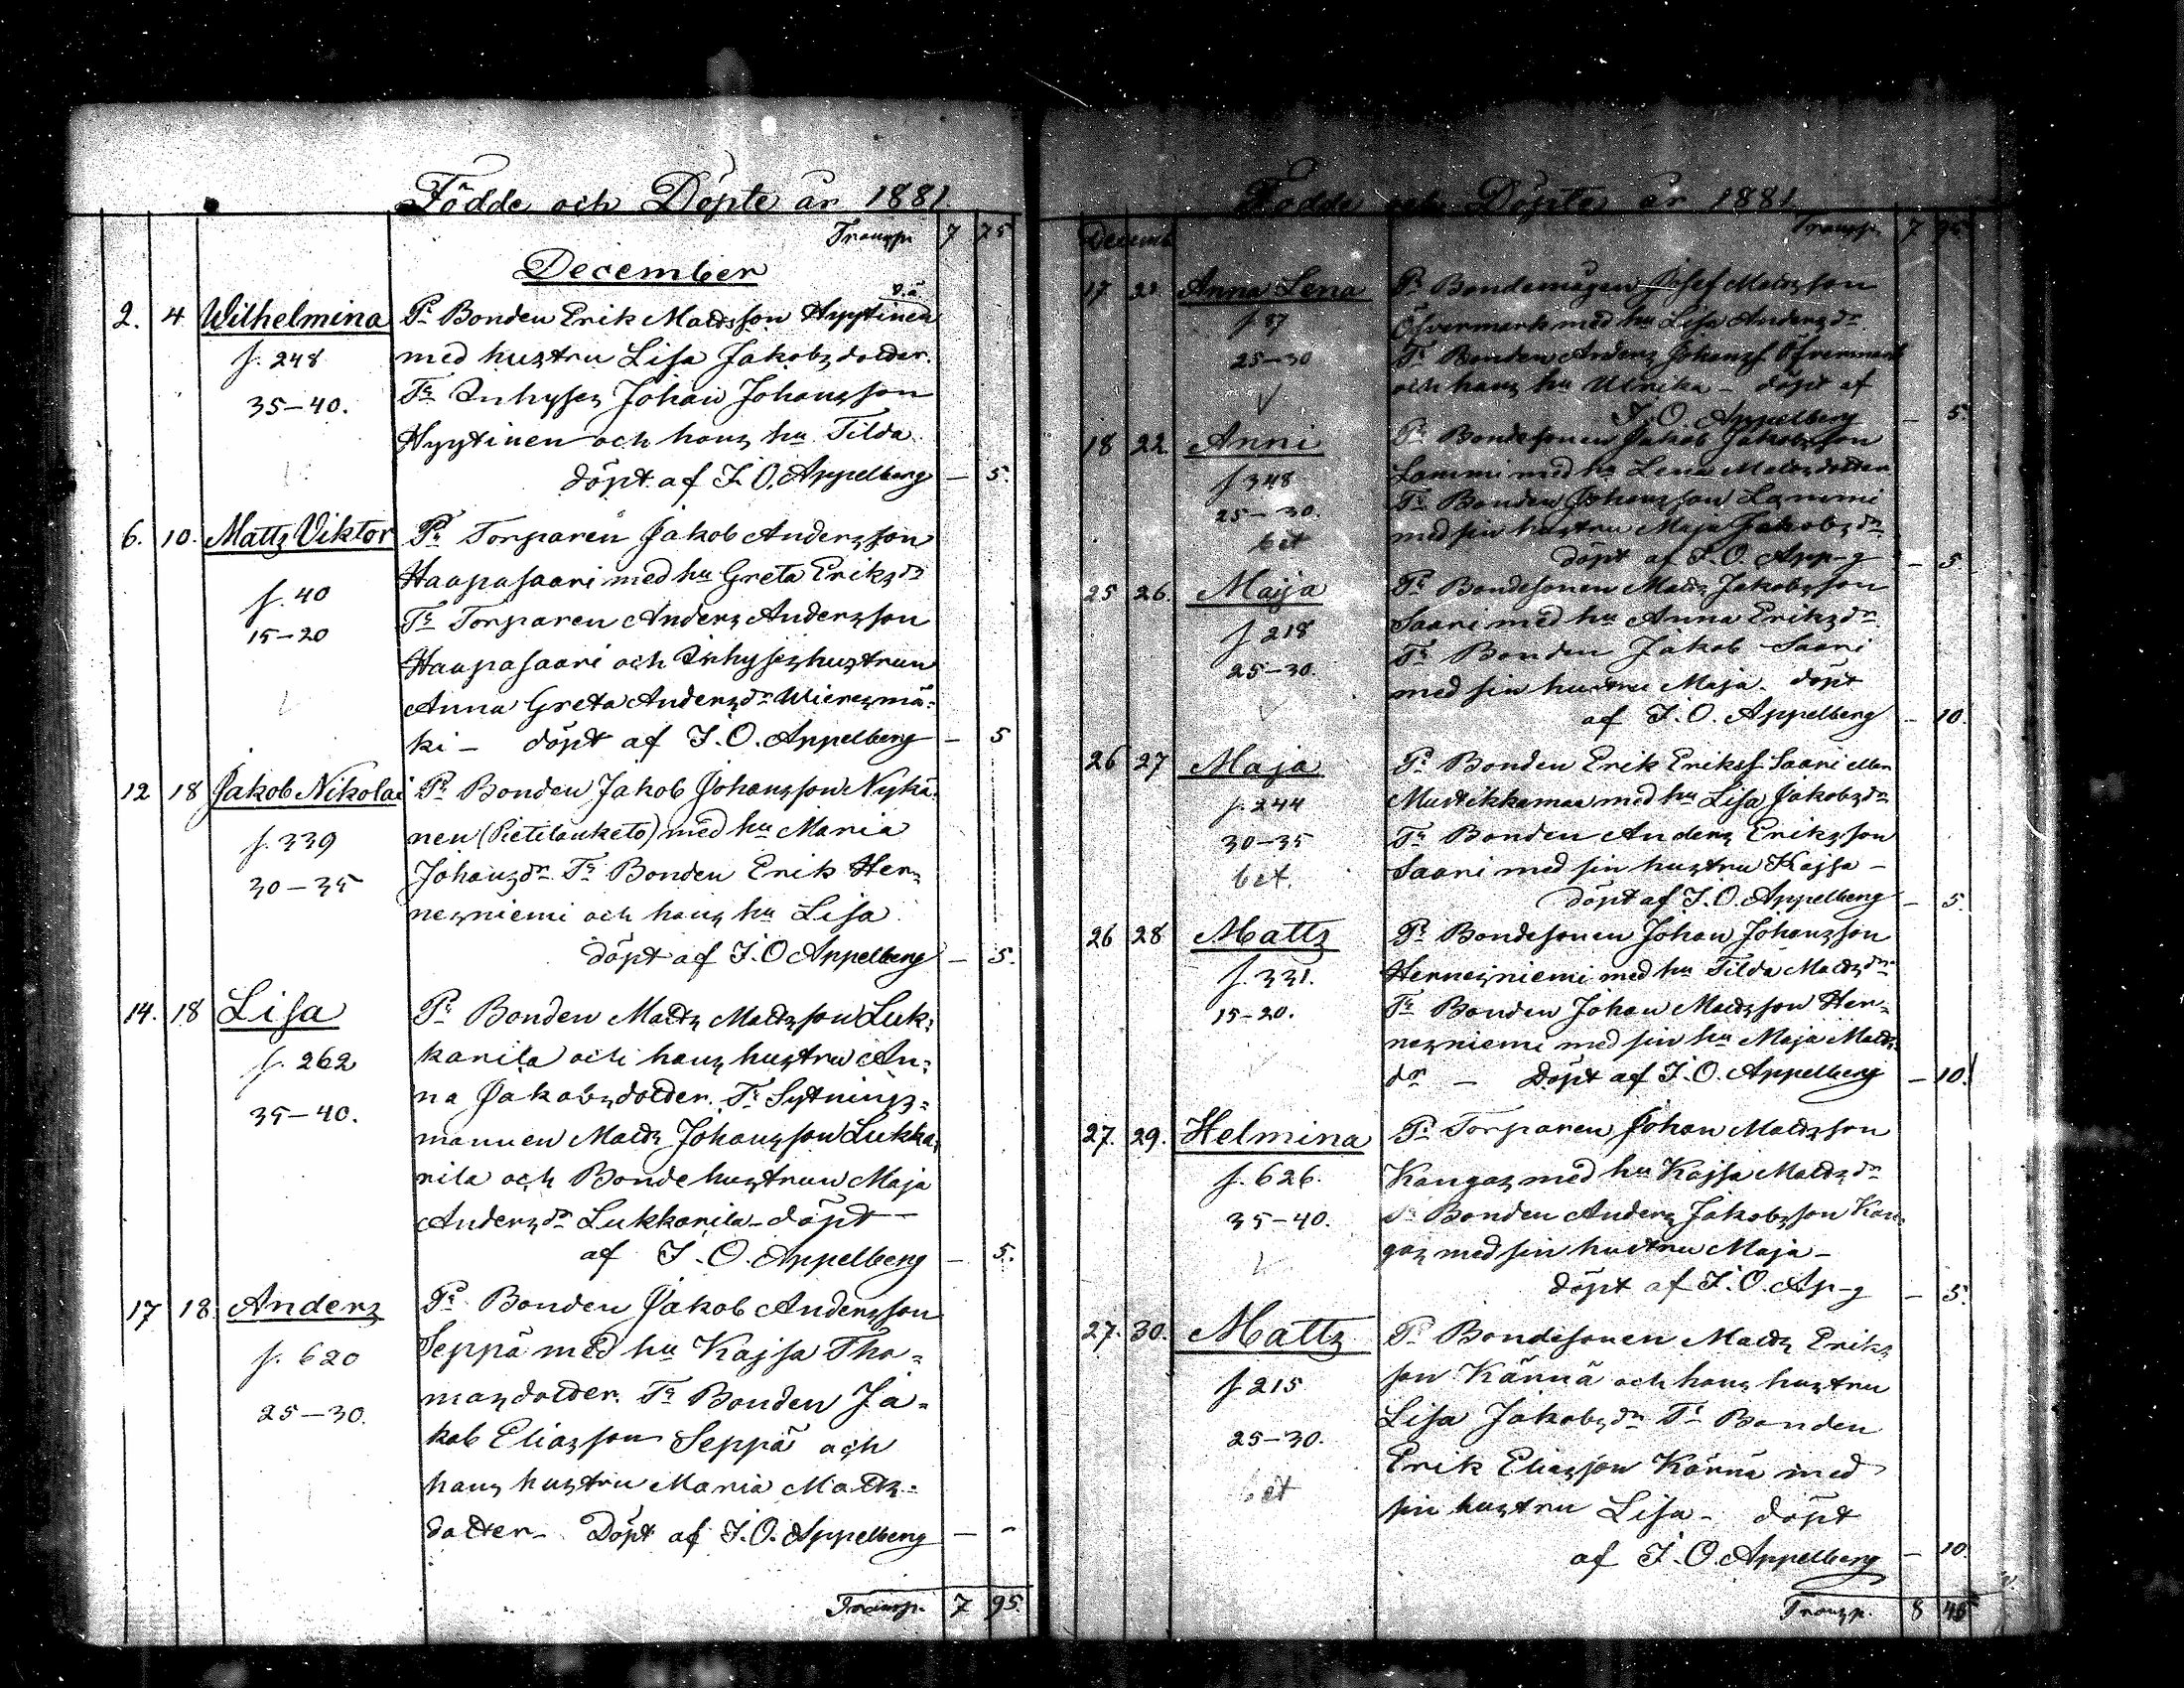 Födde och Döpte år 1881
Transp. 7 75
December
2. 4. Wilhelmina Pr Bonden Erik Mattsson Hyytinen
f. 248 med hustru Lisa Jakobsdotter.
35-40. Tr Inhyses Johan Johansson
Hyytinen och hans hu Tilda.
döpt af I. O. Appelberg — 5.
6. 10. Matts Viktor Pr Torparen Jakob Andersson
Haapasaari med hu Greta Eriksdr
f. 40
15-20 Tr Torparen Anders Andersson
Haapasaari och Inhyseshustrun
Anna Greta Andersdr Wieresmä-
ki — döpt af I. O. Appelberg — 5
12 18 Jakob Nikolai Pr Bonden Jakob Johansson Nykä-
f. 339 nen (Pietilauketo) med hu Maria
30-35 Johansdr Tr Bonden Erik Her-
nesniemi och hans hu Lisa.
döpt af I. O Appelberg — 5.
14. 18 Lisa Pr Bonden Matts Mattsson Luk-
f. 262 karila och hans hustru An-
na Jakobsdotter. Tr Sytnings-
35-40. mannen Matts Johansson Lukka-
rila och Bondehustrun Maja
Andersdr Lukkarila — döpt —
af I. O. Appelberg — 5.
17 18. Anders Pr Bonden Jakob Andersson
f. 620 Seppä med hu Kajsa Tho-
25-30. masdotter. Tr Bonden Ja-
kob Eliasson Seppä och
hans hustru Maria Matts-
dotter — Döpt af I. O. Appelberg — -
Transp. 7 95.
Födde och Döpte år 1881
Decemb. Transp. 7 95.
17 22 Anna Lena Pr Bondemågen Josef Mattsson
f. 87 Öfvermark med hu Lisa Andersdr
25-30 Tr Bonden Anders Johanss. Öfvermark
och hans hu Ulrika — döpt af
I. O. Appelberg — 5.
18 22 Anni Pr Bondesonen Jakob Jakobsson
f 348 Lammi med hu Lena Matsdotter
25-30. Tr Bonden Johansson Lammi
bet med sin hustru Maja Jakobsdr
döpt af I. O. App-g — 5
25 26. Maija Pr Bondesonen Matts Jakobsson
f 218 Saari med hu Anna Eriksdr
25-30. Tr Bonden Jakob Saari
med sin hustru Maja. döpt
af I. O. Appelberg — 10.
26 27 Maja Pr Bonden Erik Erikss. Saari eller
f. 244 Mustikkamaa med hu Lisa Jakobsdr
30-35 Tr Bonden Anders Eriksson
bet. Saari med sin hustru Kajsa —
döpt af I. O. Appelberg — 5.
26 28 Matts Pr Bondesonen Johan Johansson
f. 331. Hernesniemi med hu Tilda Mattsdr
15-20. Tr Bonden Johan Mattsson Her-
nesniemi med sin hu Maja Matts-
dr — Döpt af I. O. Appelberg — 10.
27. 29. Helmina Pr Torparen Johan Mattsson
f. 626. Kangas med hu Kajsa Mattsdr
35-40. Tr Bonden Anders Jakobsson Kan-
gas med sin hustru Maja —
döpt af I. O. Ap-g — 5.
27. 30. Matts Pr Bondesonen Matts Eriks-
f 215 son Kännä och hans hustru
Lisa Jakobsdr Tr Bonden
25-30. Erik Eliasson Kännä med
bet sin hustru Lisa — döpt
af I. O. Appelberg — 10.
Transp. 8 45